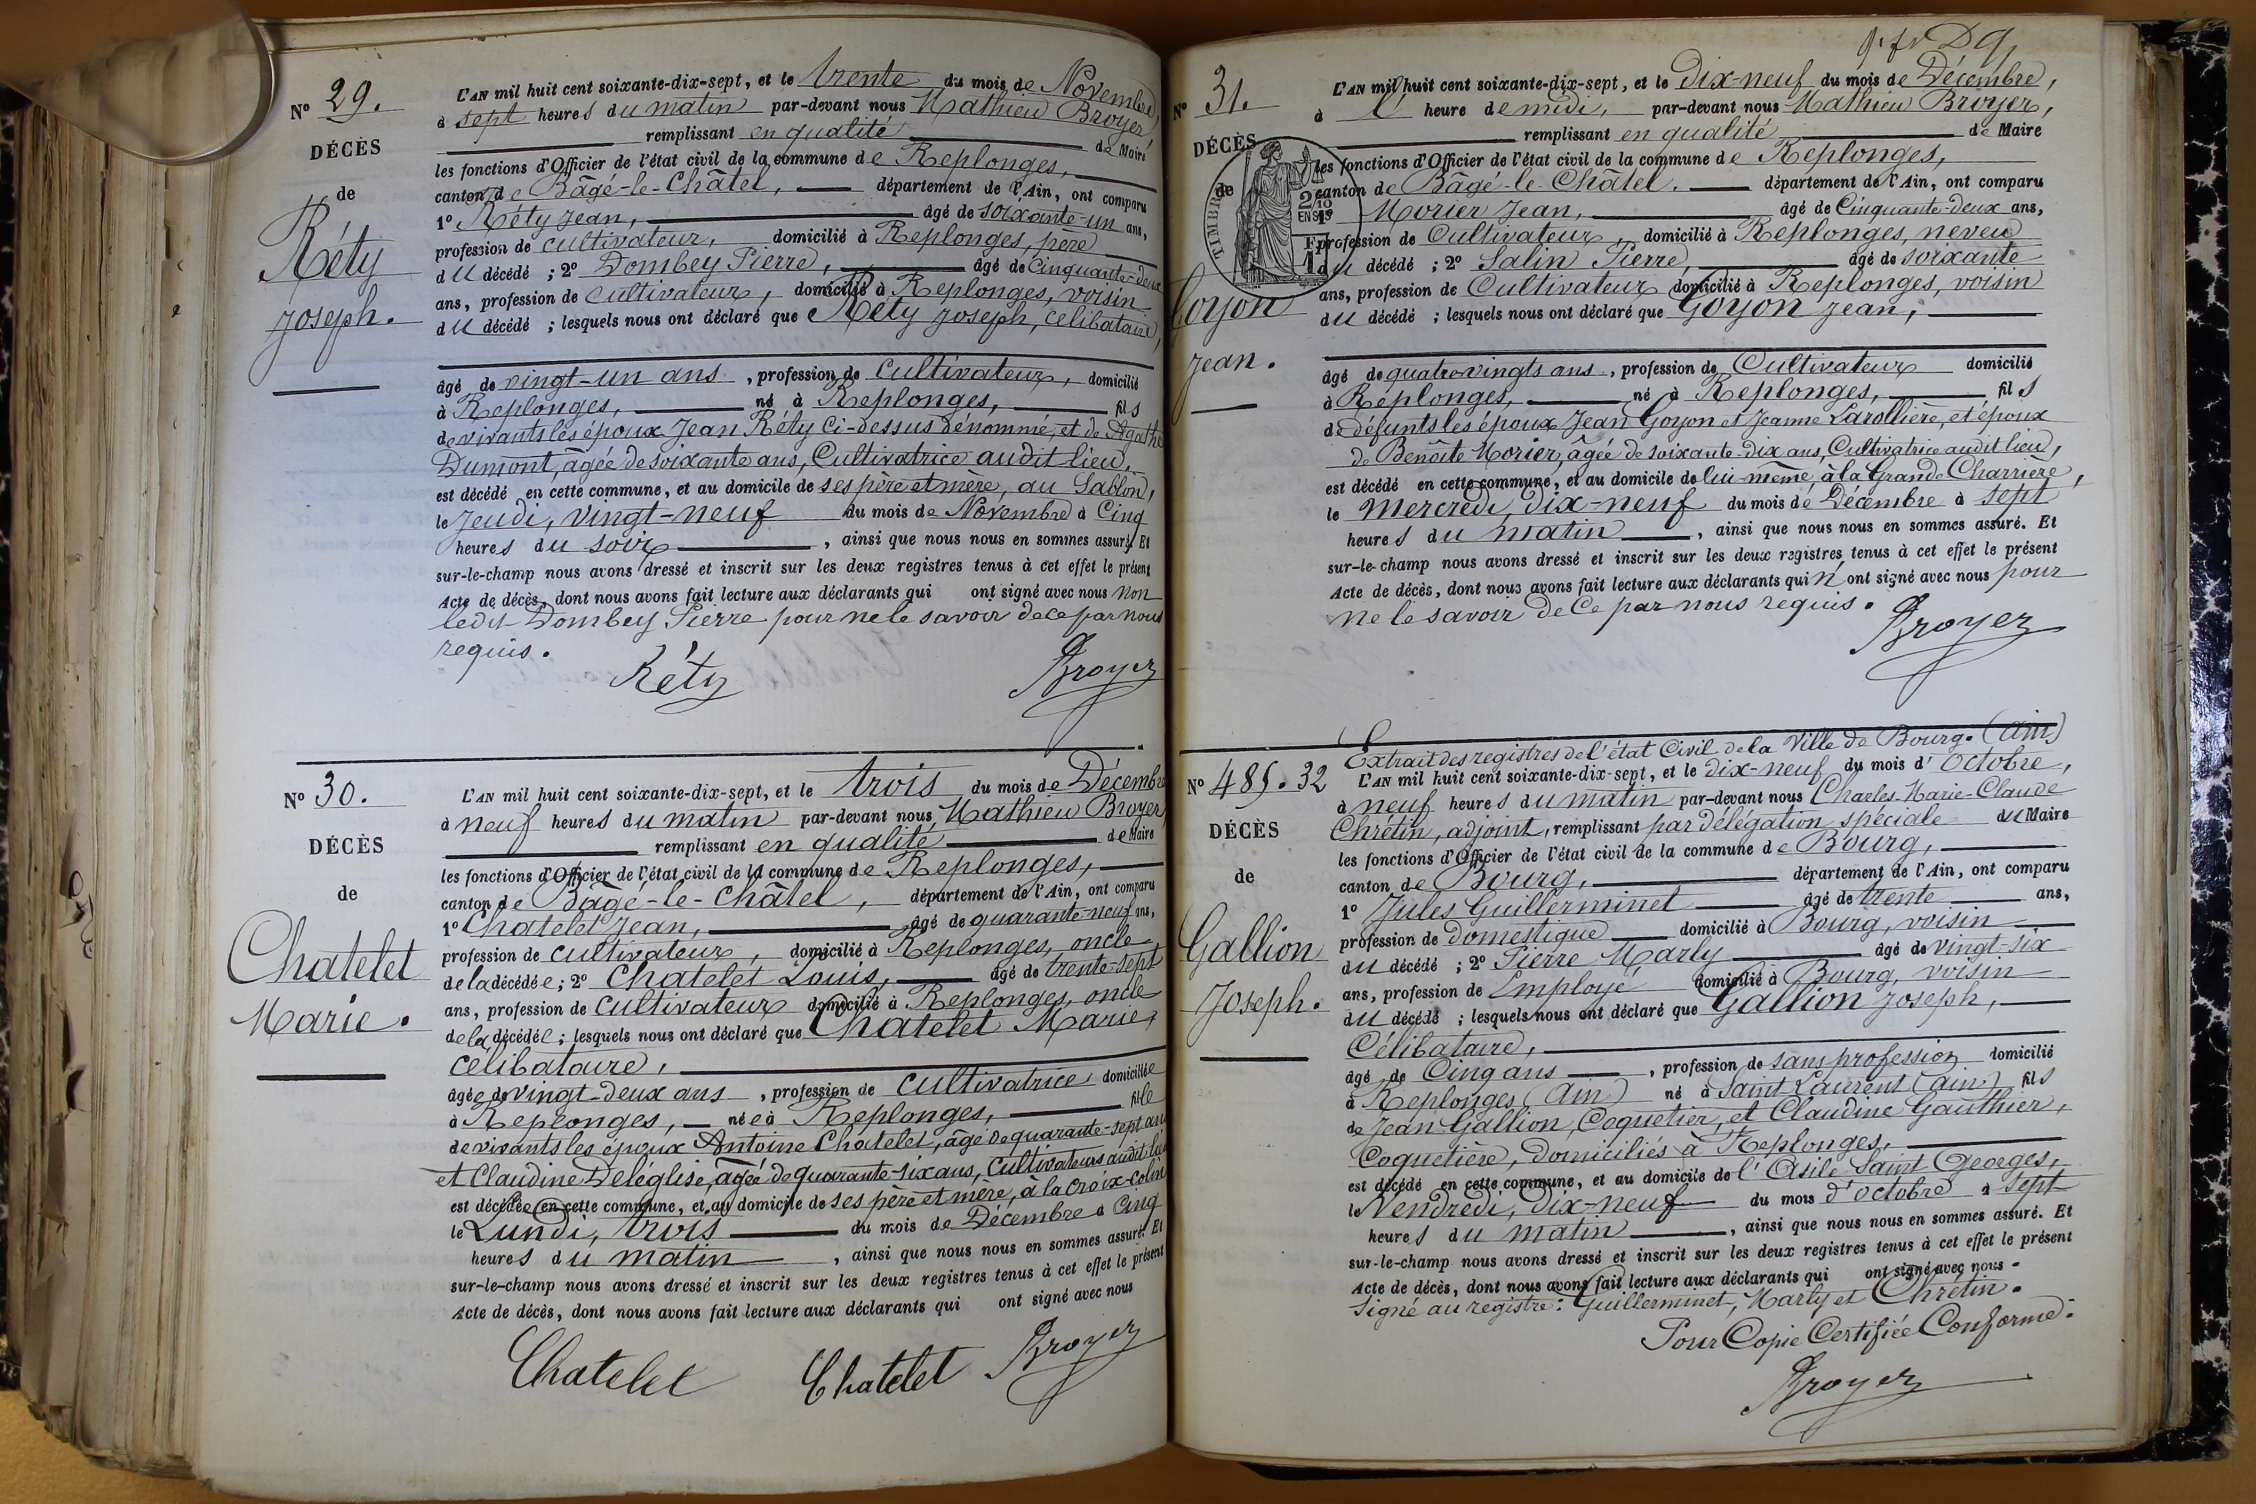 N° 29.
DÉCÈS
de
Réty
Joseph.
L'AN mil huit cent soixante-dix-sept, et le trente du mois de Novembre,
à sept heures du matin par-devant nous Mathieu Broyer,
remplissant en qualité de Maire
les fonctions d'Officier de l'état civil de la commune de Replonges,
canton de Bâgé-le-Châtel, département de l'Ain, ont comparu
1° Réty Jean, âgé de soixante-un ans,
profession de cultivateur, domicilié à Replonges, père
du décédé ; 2° Dombey Pierre, âgé de cinquante-deux
ans, profession de cultivateur, domicilié à Replonges, voisin
du décédé ; lesquels nous ont déclaré que Réty Joseph, célibataire,
âgé de vingt-un ans, profession de cultivateur, domicilié
à Replonges, né à Replonges, fils
de vivants les époux Jean Réty ci-dessus dénommé, et de Agathe
Dumont, âgée de soixante ans, Cultivatrice audit lieu,
est décédé en cette commune, et au domicile de ses père et mère, au Sablon,
le Jeudi, vingt-neuf du mois de Novembre à Cinq
heures du soir, ainsi que nous nous en sommes assuré. Et
sur-le-champ nous avons dressé et inscrit sur les deux registres tenus à cet effet le présent
Acte de décès, dont nous avons fait lecture aux déclarants qui ont signé avec nous non
ledit Dombey Pierre pour ne le savoir de ce par nous
requis.
Réty Broyer
N° 30.
DÉCÈS
de
Chatelet
Marie.
L'AN mil huit cent soixante-dix-sept, et le trois du mois de Décembre
à neuf heures du matin par-devant nous Mathieu Broyer,
remplissant en qualité de Maire
les fonctions d'Officier de l'état civil de la commune de Replonges,
canton de Bâgé-le-Châtel, département de l'Ain, ont comparu
1° Chatelet Jean, âgé de quarante-neuf ans,
profession de cultivateur, domicilié à Replonges, oncle
de la décédée ; 2° Chatelet Louis, âgé de trente-sept
ans, profession de cultivateur domicilié à Replonges, oncle
de la décédée ; lesquels nous ont déclaré que Chatelet Marie,
célibataire,
âgée de vingt-deux ans, profession de cultivatrice domiciliée
à Replonges, née à Replonges, fille
de vivants les époux Antoine Chatelet, âgé de quarante-sept ans
et Claudine Deléglise, âgée de quarante-six ans, cultivateurs audit lieu
est décédée en cette commune, et au domicile de ses père et mère, à la Croix-Colin
le Lundi, trois du mois de Décembre à Cinq
heures du matin, ainsi que nous nous en sommes assuré. Et
sur-le-champ nous avons dressé et inscrit sur les deux registres tenus à cet effet le présent
Acte de décès, dont nous avons fait lecture aux déclarants qui ont signé avec nous
Chatelet Chatelet Broyer
N° 31.
DÉCÈS
de
Goyon
Jean.
TIMBRE
2/10
EN SUS
L'AN mil huit cent soixante-dix-sept, et le dix-neuf du mois de Décembre,
à l' heure de midi, par-devant nous Mathieu Broyer,
remplissant en qualité de Maire
les fonctions d'Officier de l'état civil de la commune de Replonges,
canton de Bâgé-le-Châtel, département de l'Ain, ont comparu
1° Morier Jean, âgé de Cinquante-deux ans,
profession de Cultivateur, domicilié à Replonges, neveu
du décédé ; 2° Salin Pierre, âgé de soixante
ans, profession de Cultivateur domicilié à Replonges, voisin
du décédé ; lesquels nous ont déclaré que Goyon Jean,
âgé de quatre-vingts ans, profession de Cultivateur domicilié
à Replonges, né à Replonges, fils
de défunts les époux Jean Goyon et Jeanne Larollière, et époux
de Benoîte Morier, âgée de soixante-dix ans, Cultivatrice audit lieu,
est décédé en cette commune, et au domicile de lui-même, à la Grande Charrière,
le Mercredi, dix-neuf du mois de Décembre à sept
heures du matin, ainsi que nous nous en sommes assuré. Et
sur-le-champ nous avons dressé et inscrit sur les deux registres tenus à cet effet le présent
Acte de décès, dont nous avons fait lecture aux déclarants qui n'ont signé avec nous pour
ne le savoir de Ce par nous requis.
Broyer
N° 485. 32
DÉCÈS
de
Gallion
Joseph.
Extrait des registres de l'état Civil de la Ville de Bourg. (Ain)
L'AN mil huit cent soixante-dix-sept, et le dix-neuf du mois d'octobre,
à neuf heures du matin par-devant nous Charles-Marie-Claude
Chrétin, adjoint, remplissant par délégation spéciale du Maire
les fonctions d'Officier de l'état civil de la commune de Bourg,
canton de Bourg, département de l'Ain, ont comparu
1° Jules Guillerminet âgé de trente ans,
profession de domestique domicilié à Bourg, voisin
du décédé ; 2° Pierre Marly âgé de vingt-six
ans, profession de Employé domicilié à Bourg, voisin
du décédé ; lesquels nous ont déclaré que Gallion Joseph,
Célibataire,
âgé de Cinq ans, profession de sans profession domicilié
à Replonges (Ain) né à Saint Laurent (Ain) fils
de Jean Gallion, Coquetier, et Claudine Gauthier,
Coquetière, domiciliés à Replonges,
est décédé en cette commune, et au domicile de l'Asile Saint Georges,
le Vendredi, dix-neuf du mois d'octobre à sept
heures du matin, ainsi que nous nous en sommes assuré. Et
sur-le-champ nous avons dressé et inscrit sur les deux registres tenus à cet effet le présent
Acte de décès, dont nous avons fait lecture aux déclarants qui ont signé avec nous.
Signé au registre : Guillerminet, Marly et Chrétin.
Pour Copie Certifiée Conforme :
Broyer